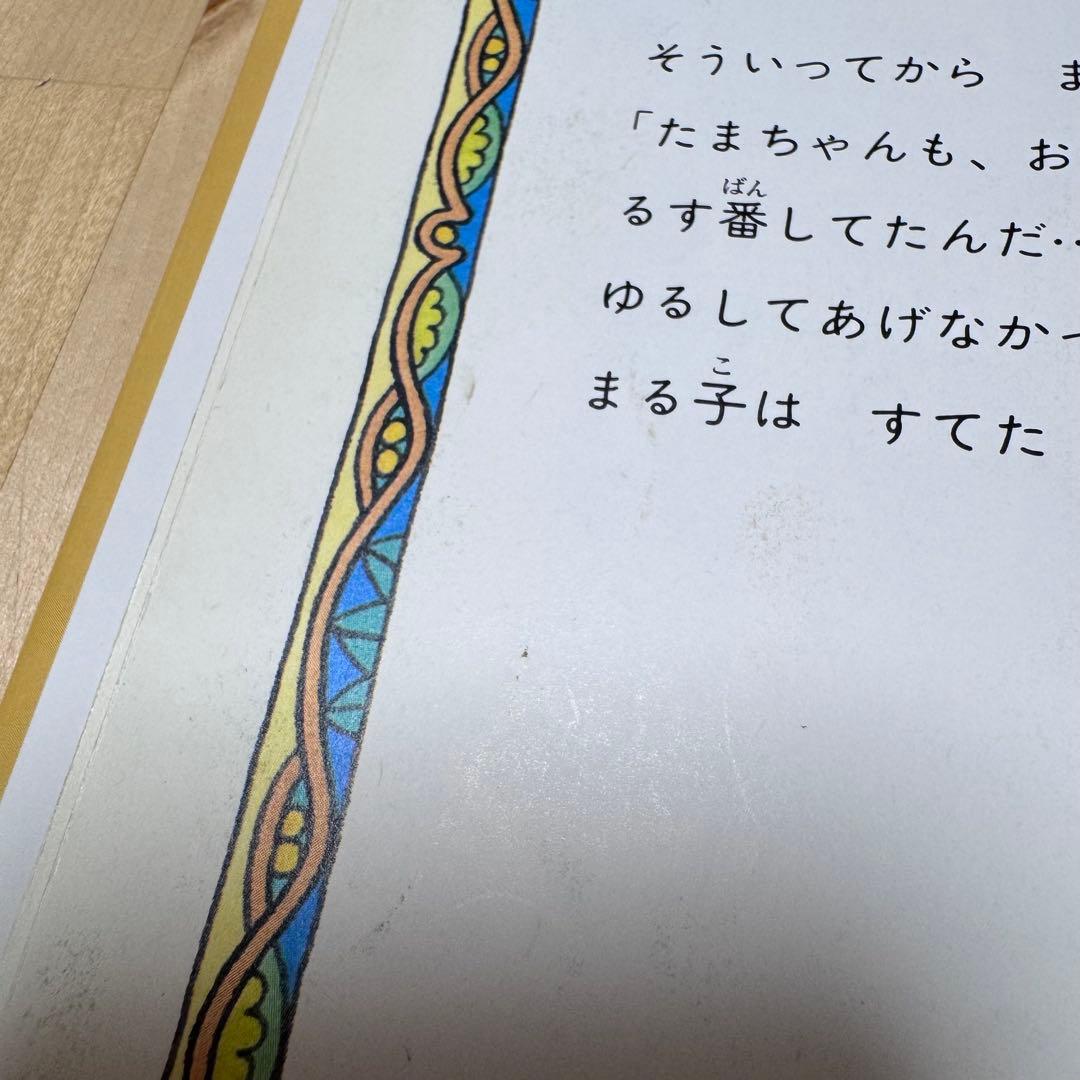 そういってから ま
「たまちゃんも、お
るす番してたんだ‥
ゆるしてあげなかっ
まる子は すてた